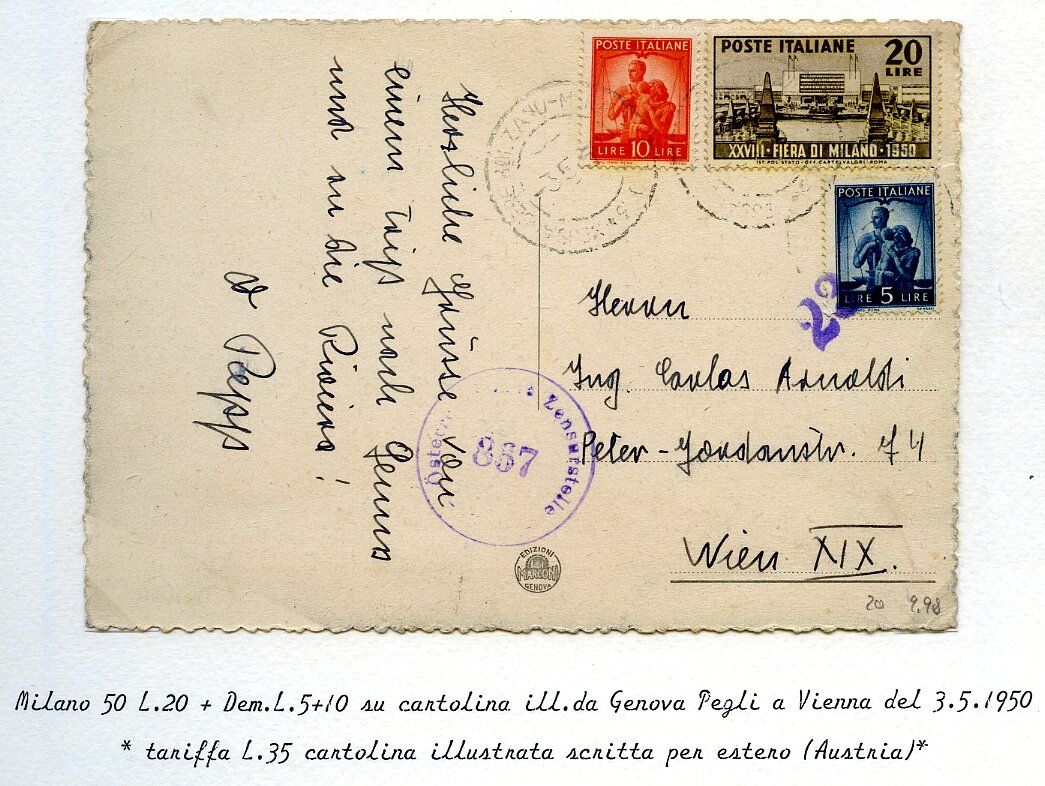 POSTE ITALIANE
LIRE 10 LIRE
POSTE ITALIANE
20
LIRE
XXVIII - FIERA DI MILANO - 1950
IST. POL. STATO - OFF. CARTEVALORI - ROMA
POSTE ITALIANE
LIRE 5 LIRE
Herzliche Grüsse von
einem Trip nach Genua
und an die Riviera!
Pepp
23
Herrn
Ing. Carlos Arnoldi
Peter-Jordanstr. 74
Wien XIX.
Zensurstelle
867
EDIZIONI
MARCONI
GENOVA
20 9.98
Milano 50 L.20 + Dem.L.5+10 su cartolina ill.da Genova Pegli a Vienna del 3.5.1950
* tariffa L.35 cartolina illustrata scritta per estero (Austria)*